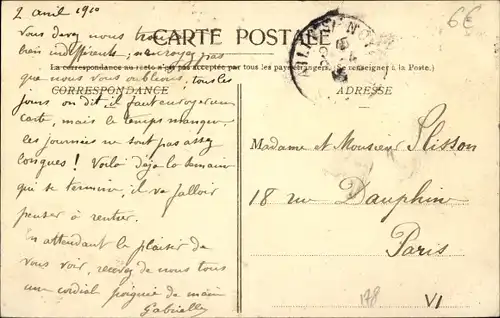 2 avril 1910
66
Vous devez nous trouver
bien indifférents ; ne croyez pas
CARTE POSTALE
La correspondance au recto n'est pas acceptée par tous les pays étrangers. (Se renseigner à la Poste.)
que nous vous oublions, tous les
CORRESPONDANCE
jours on dit il faut envoyer une
carte, mais le temps manque,
les journées ne sont pas assez
longues ! Voilà déjà la semaine
qui se termine, il va falloir
penser à rentrer.
En attendant le plaisir de
vous voir, recevez de nous tous
une cordial poignée de main
Gabrielle
ADRESSE
Madame et Monsieur Slisson
18 rue Dauphin
Paris
178
VI